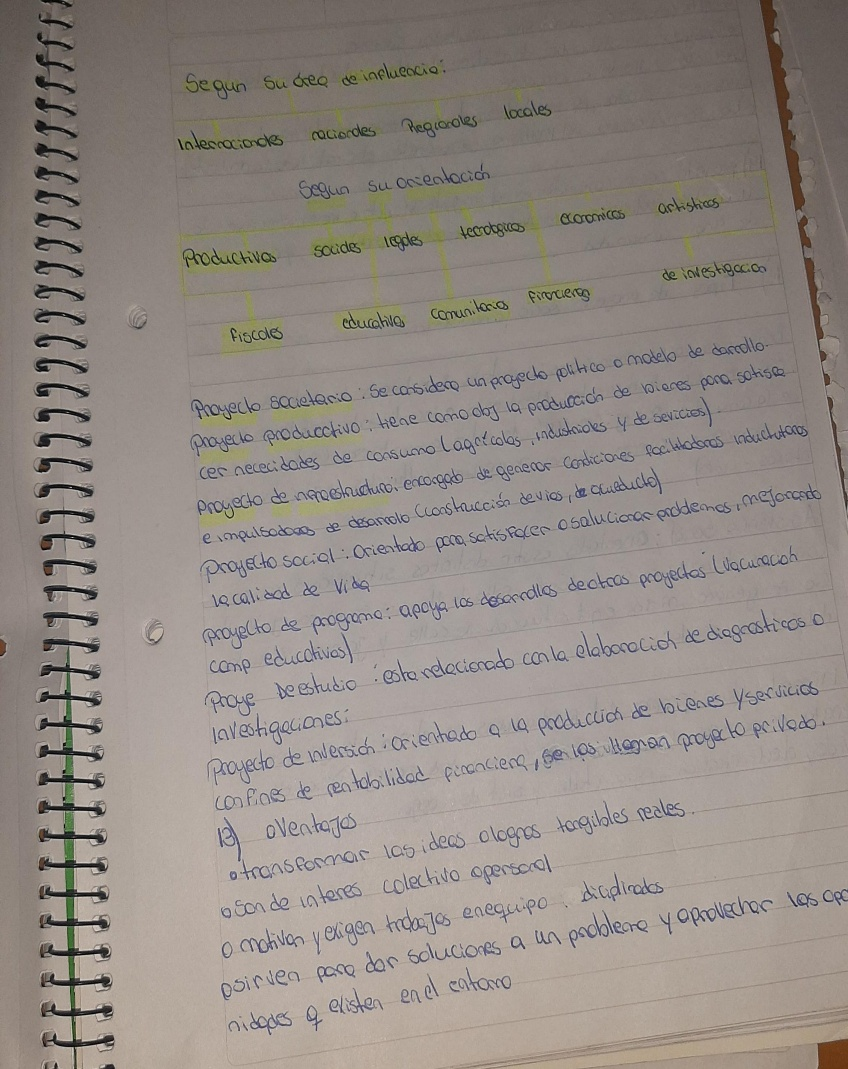 Segun su área de influencia:
Internacionales nacionales Regionales locales
Segun su orientación
Productivos sociales legales tecnologicos economicos artisticos
fiscales educativo comunitario financieros de investigacion
Proyecto societario: Se considera un proyecto politico o modelo de darrollo.
proyecto producctivo: tiene como obj la producción de bienes para satisfa
cer nececidades de consumo (agrícolas, industriales y de sevicios).
Proyecto de infraestructura: encargado de generar condiciones facilitadoras inductutoras
e impulsadoras de desarrolo (construcción de vias, de acueducto)
proyecto social: Orientado para satisfacer o salucionar problemas, mejorando
la calidad de vida
proyecto de programa: apoya los desarrollos de otros proyectos (vacunacion
camp educativos)
Proye De estudio: esta relacionado con la elaboración de diagnosticos o
investigaciones:
proyecto de inversión: orientado a la producción de bienes y servicios
con fines de rentabilidad financiera, se los llaman proyecto privado.
13) ventajas
transformar las ideas o logros tangibles reales.
son de interes colectivo o personal
motivan y exigen trabajos en equipo. diciplinados
sirven para dar soluciones a un problema y aprovechar las opo
nidades q existen en el entorno